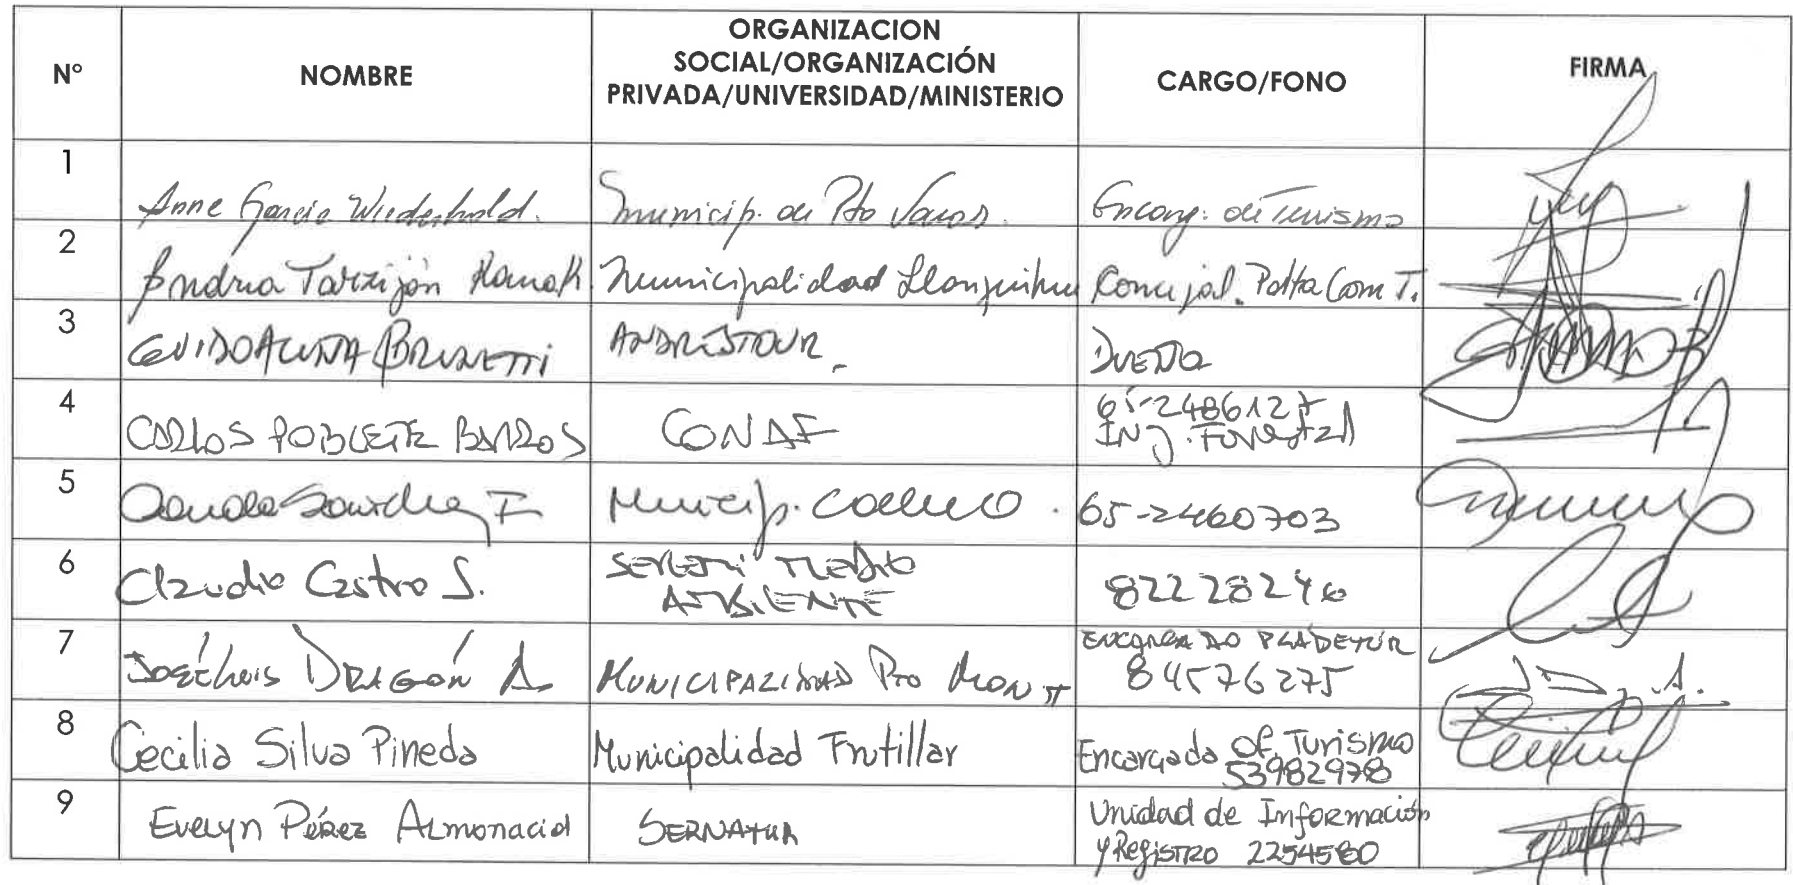 N° NOMBRE ORGANIZACION SOCIAL/ORGANIZACIÓN PRIVADA/UNIVERSIDAD/MINISTERIO CARGO/FONO FIRMA
1 Anne Garcia Wiederhold. Municip. de Pto Varas. Encarg. de Turismo
2 Andrea Tarzijan Municipalidad Llanquihue Concejal. Pdta Com T.
3 GUIDO ACUÑA BRUNETTI ANDRESTOUR. DUEÑO
4 CARLOS POBLETE BARROS CONAF 65-2486127
Ing. Forestal
5 Sanchez F. Municip. 65-2460703
6 Claudio Castro S. SEREMI MEDIO
AMBIENTE 82228246
7 José Luis DRAGÓN A. MUNICIPALIDAD Pto MONTT ENCARGADO PLADETUR
84576275
8 Cecilia Silva Pineda Municipalidad Frutillar Encargada Of. Turismo
53982978
9 Evelyn Pérez Almonacid SERNATUR Unidad de Información
y Registro 2254580